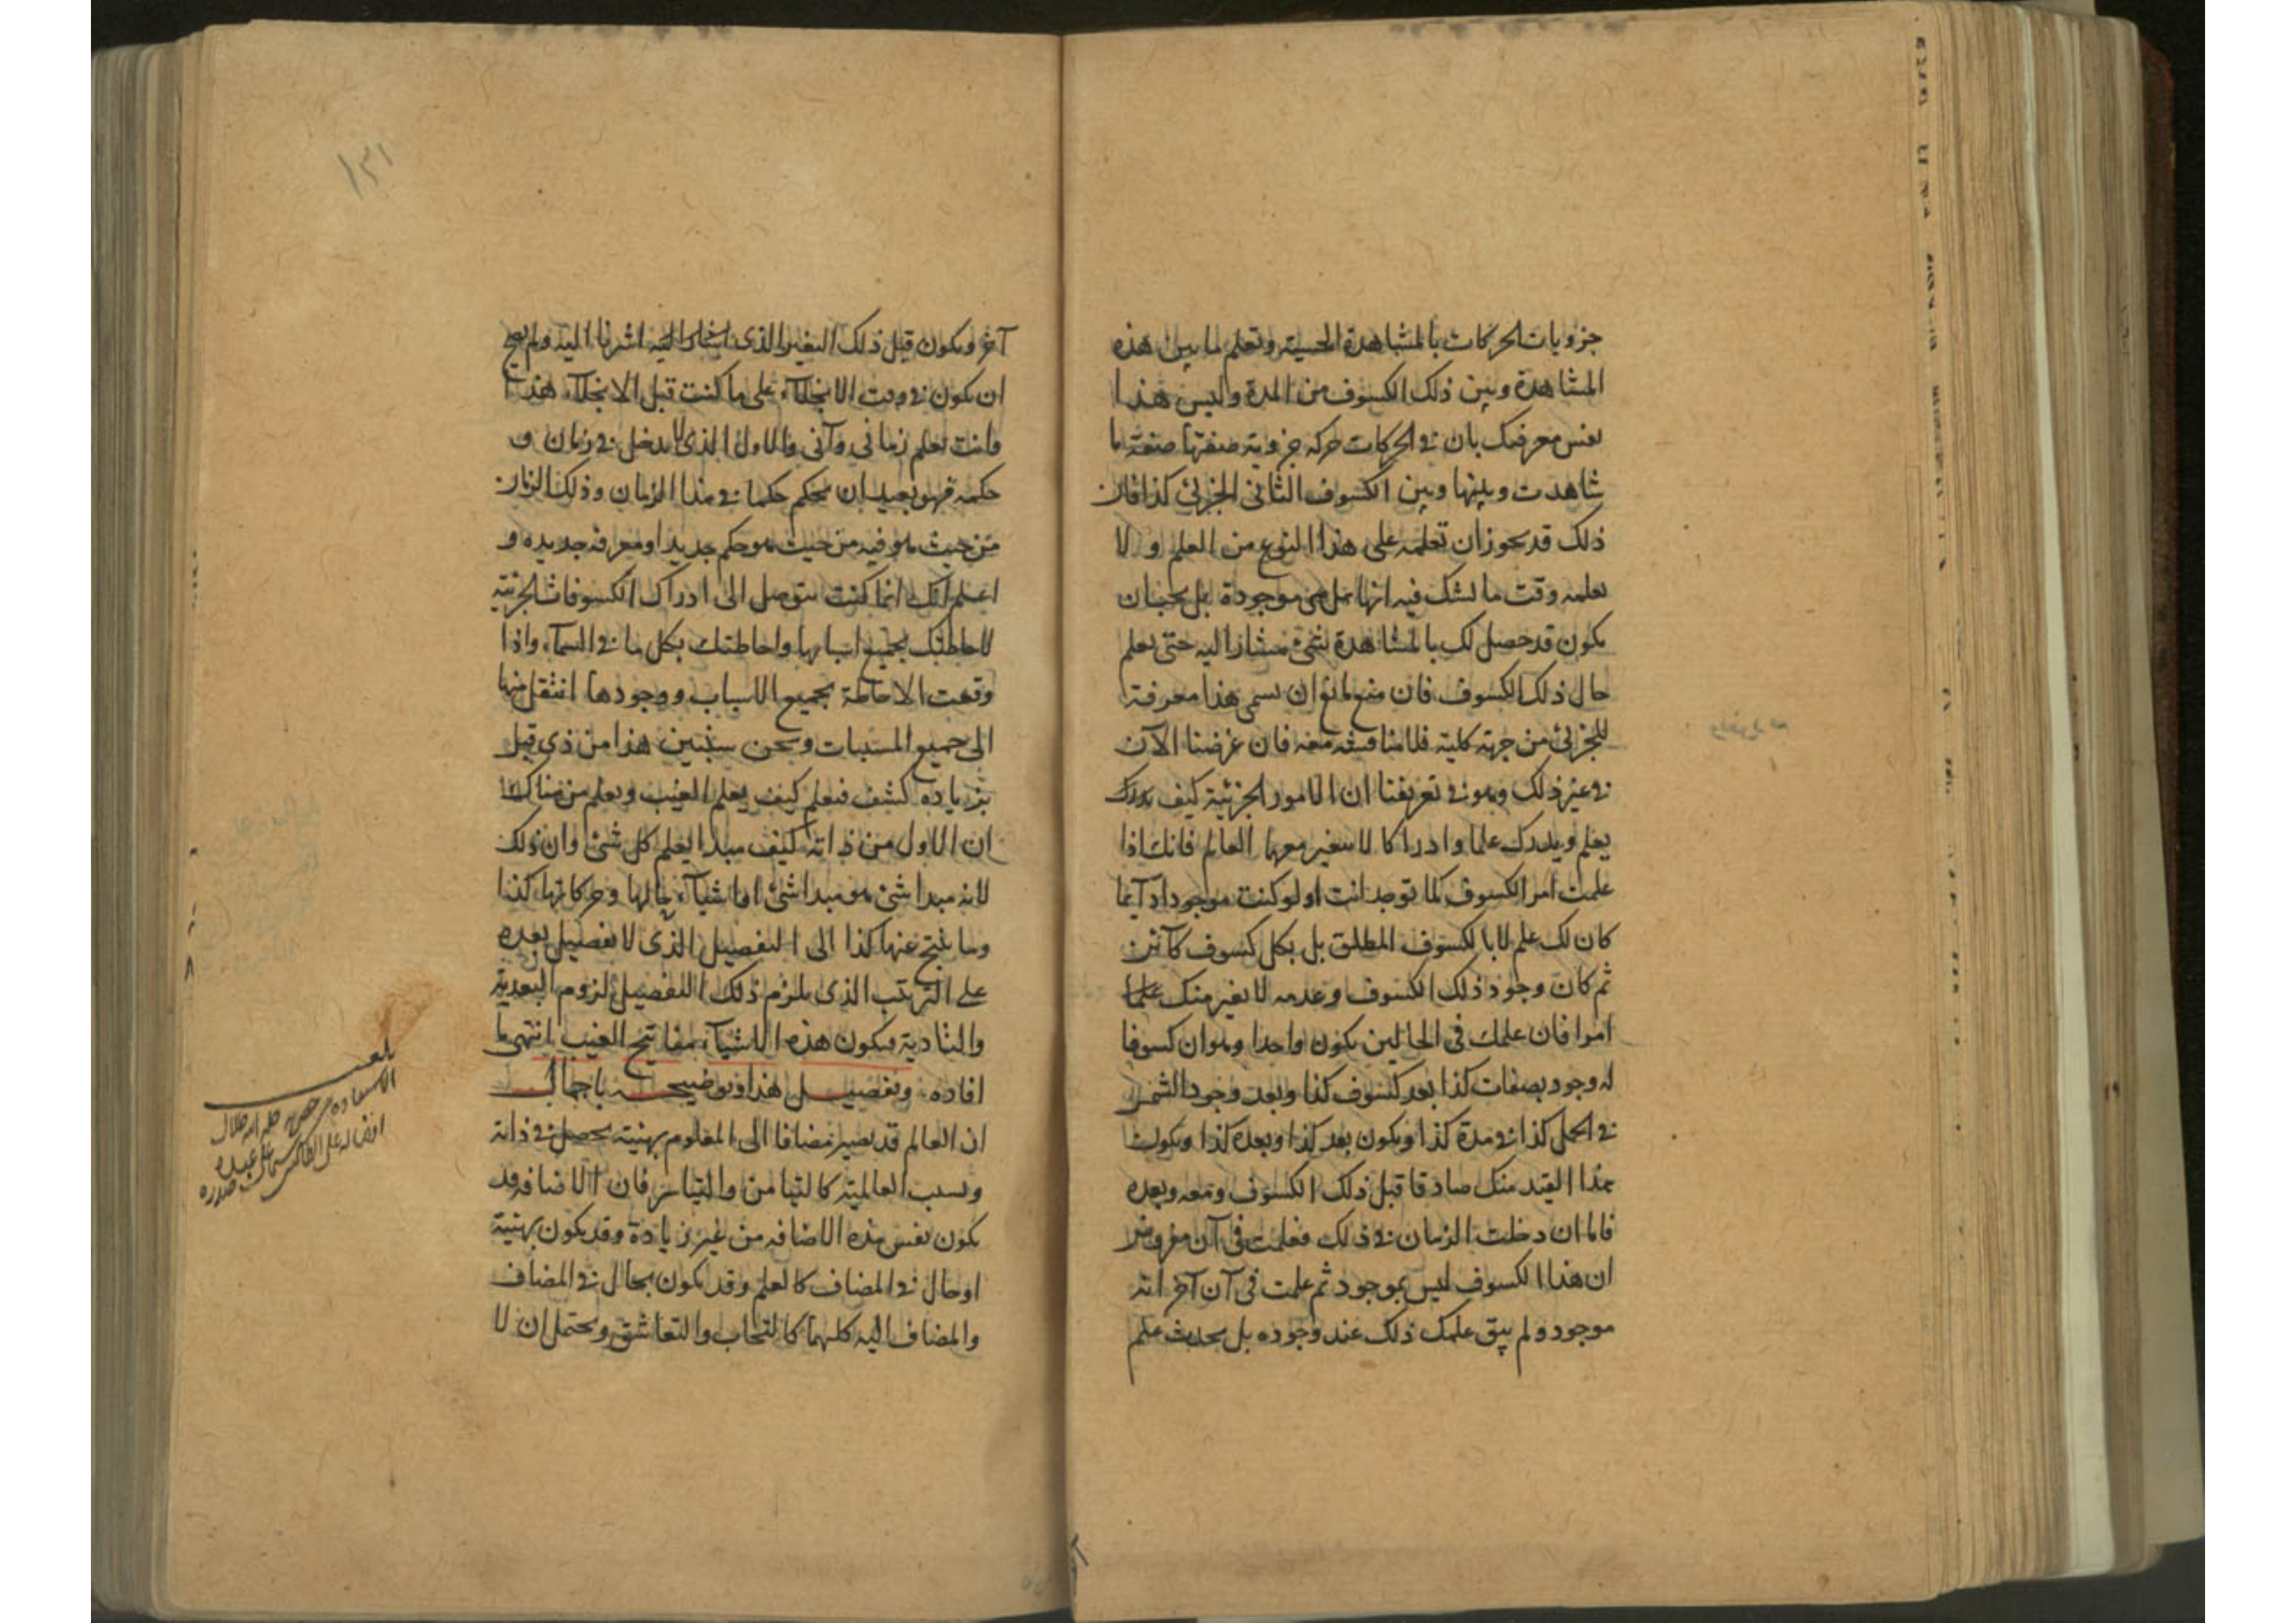 جزويات الحركات بالمشاهدة الحسية وتعلم ما بين هذه
المشاهدة وبين ذلك الكسوف من المدة وليس هذا
نفس معرفتك بان في الحركات حركة جزوية صفتها صفة ما
شاهدت وبينها وبين الكسوف الثاني الجزئي كذا فان
ذلك قد يجوز ان تعلمه على هذا النوع من العلم ولا
تعلمه وقت ما نشك فيه انها هل هي موجودة بل يجب ان
يكون قد حصل لك بالمشاهدة شئ مشارا اليه حتى تعلم
حال ذلك الكسوف فان منع مانع ان يسمى هذا معرفة
للجزئي من جهة كلية فلا مناقشة معه فان غرضنا الآن
في غير ذلك وهو في تعريفنا ان الامور الجزئية كيف
يعلم ويدرك علما وادراكا لا يتغير معهما العالم فانك اذا
علمت امر الكسوف كما توجد انت او لو كنت موجودا دآئما
كان لك علم لا بالكسوف المطلق بل بكل كسوف كآئن
ثم كان وجود ذلك الكسوف وعدمه لا يغير منك
امرا فان علمك في الحالين يكون واحدا وهو ان كسوفا
له وجود بصفات كذا بعد كسوف كذا وبعد وجود الشمس
في الحمل كذا في مدة كذا ويكون بعد كذا وبعده كذا ويكون
هذا العقد منك صادقا قبل ذلك الكسوف ومعه وبعده
فاما ان دخلت الزمان في ذلك فعلمت في آن مفروض
ان هذا الكسوف ليس بموجود ثم علمت في آن آخر انه
موجود ولم يبق علمك ذلك عند وجوده بل يحدث علم
١٣١
آخر ويكون قبل ذلك التغير الذي اشرنا اليه ولم يصح
ان تكون في وقت الانجلآء على ما كنت قبل الانجلآء هذا
وانت تعلم زماني وآني والاول الذي لا يدخل في زمان و
حكمه فهو بعيد ان يحكم حكما في هذا الزمان وذلك الزمان
من حيث هو فيه من حيث هو حكم جديد او معرفة جديده و
اعلم انك انما كنت تتوصل الى ادراك الكسوفات الجزئية
لاحاطتك بجميع اسبابها واحاطتك بكل ما في السمآء واذا
وقعت الاحاطة بجميع الاسباب ووجودها انتقل منها
الى جميع المسببات ونحن سنبين هذا من ذي قبل
بزياده كشف فتعلم كيف يعلم الغيب وتعلم من هناك
ان الاول من ذاته كيف مبدا يعلم كل شئ وان ذلك
لانه مبدا شئ هو مبدا شئ او اشيآء حالها وحركاتها كذا
وما ينتج عنها كذا الى التفصيل الذي لا تفصيل بعده
على الترتيب الذي يلزم ذلك التفصيل لزوم البعدية
والتادية فيكون هذه الاشيآء مفاتيح الغيب انتهى ما
افاده وتفصيل هذا وتوضيحه باجماله
ان العالم قد يصير مضافا الى المعلوم بهيئة تحصل في ذاته
وليست العالمية كالتيامن والتياسر فان الاضافه قد
يكون نفس هذه الاضافه من غير زيادة وقد يكون بهيئة
او حال في المضاف كالعلم وقد يكون بحال في المضاف
والمضاف اليه كليهما كالتحاب والتعاشق ويحتمل ان لا
بلغ